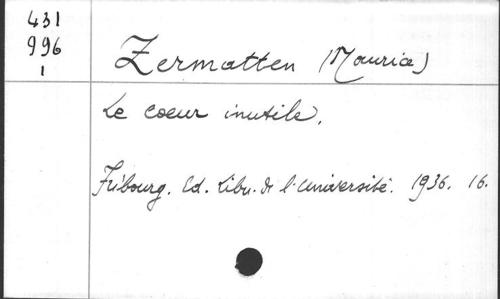 431
996
1
Zermatten (Maurice)
Le coeur inutile.
Fribourg. Ed. Libr. de l'université. 1936. 16.